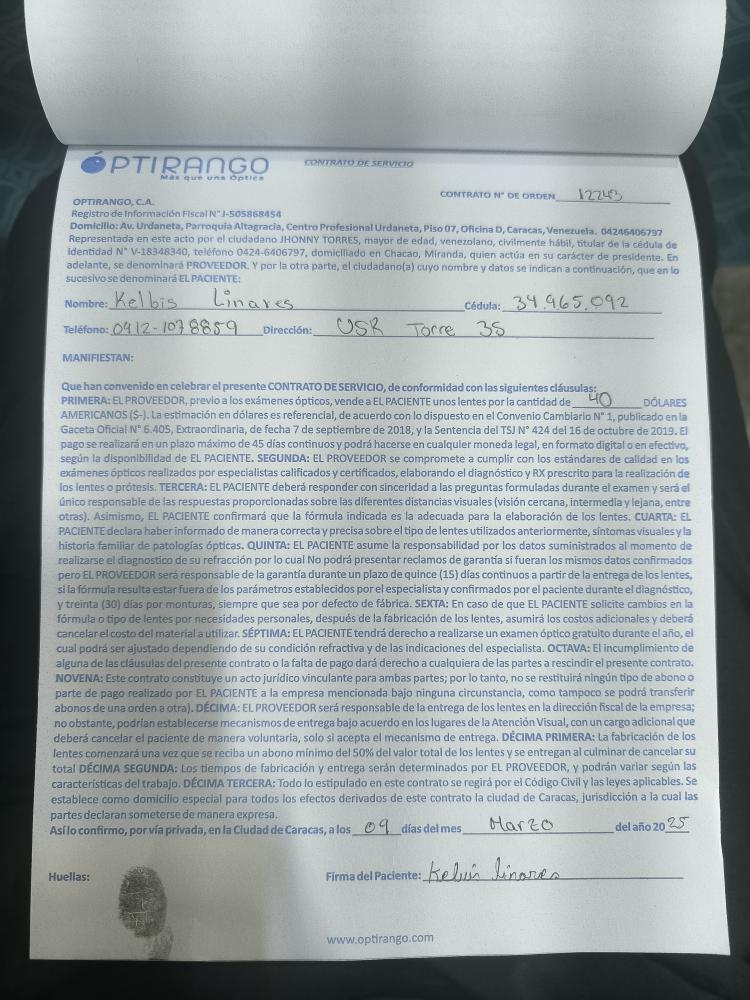 OPTIRANGO
Más que una Óptica
CONTRATO DE SERVICIO
CONTRATO N° DE ORDEN 12243
OPTIRANGO, C.A.
Registro de Información Fiscal N° J-505868454
Domicilio: Av. Urdaneta, Parroquia Altagracia, Centro Profesional Urdaneta, Piso 07, Oficina D, Caracas, Venezuela. 04246406797
Representada en este acto por el ciudadano JHONNY TORRES, mayor de edad, venezolano, civilmente hábil, titular de la cédula de
identidad N° V-18348340, teléfono 0424-6406797, domiciliado en Chacao, Miranda, quien actúa en su carácter de presidente. En
adelante, se denominará PROVEEDOR. Y por la otra parte, el ciudadano(a) cuyo nombre y datos se indican a continuación, que en lo
sucesivo se denominará EL PACIENTE:
Nombre: Kelbis Linares Cédula: 34.965.092
Teléfono: 0412-1078859 Dirección: USR Torre 35
MANIFIESTAN:
Que han convenido en celebrar el presente CONTRATO DE SERVICIO, de conformidad con las siguientes cláusulas:
PRIMERA: EL PROVEEDOR, previo a los exámenes ópticos, vende a EL PACIENTE unos lentes por la cantidad de 40 DÓLARES
AMERICANOS ($-). La estimación en dólares es referencial, de acuerdo con lo dispuesto en el Convenio Cambiario N° 1, publicado en la
Gaceta Oficial N° 6.405, Extraordinaria, de fecha 7 de septiembre de 2018, y la Sentencia del TSJ N° 424 del 16 de octubre de 2019. El
pago se realizará en un plazo máximo de 45 días continuos y podrá hacerse en cualquier moneda legal, en formato digital o en efectivo,
según la disponibilidad de EL PACIENTE. SEGUNDA: EL PROVEEDOR se compromete a cumplir con los estándares de calidad en los
exámenes ópticos realizados por especialistas calificados y certificados, elaborando el diagnóstico y RX prescrito para la realización de
los lentes o prótesis. TERCERA: EL PACIENTE deberá responder con sinceridad a las preguntas formuladas durante el examen y será el
único responsable de las respuestas proporcionadas sobre las diferentes distancias visuales (visión cercana, intermedia y lejana, entre
otras). Asimismo, EL PACIENTE confirmará que la fórmula indicada es la adecuada para la elaboración de los lentes. CUARTA: EL
PACIENTE declara haber informado de manera correcta y precisa sobre el tipo de lentes utilizados anteriormente, síntomas visuales y la
historia familiar de patologías ópticas. QUINTA: EL PACIENTE asume la responsabilidad por los datos suministrados al momento de
realizarse el diagnostico de su refracción por lo cual No podrá presentar reclamos de garantía si fueran los mismos datos confirmados
pero EL PROVEEDOR será responsable de la garantía durante un plazo de quince (15) días continuos a partir de la entrega de los lentes,
si la fórmula resulta estar fuera de los parámetros establecidos por el especialista y confirmados por el paciente durante el diagnóstico,
y treinta (30) días por monturas, siempre que sea por defecto de fábrica. SEXTA: En caso de que EL PACIENTE solicite cambios en la
fórmula o tipo de lentes por necesidades personales, después de la fabricación de los lentes, asumirá los costos adicionales y deberá
cancelar el costo del material a utilizar. SÉPTIMA: EL PACIENTE tendrá derecho a realizarse un examen óptico gratuito durante el año, el
cual podrá ser ajustado dependiendo de su condición refractiva y de las indicaciones del especialista. OCTAVA: El incumplimiento de
alguna de las cláusulas del presente contrato o la falta de pago dará derecho a cualquiera de las partes a rescindir el presente contrato.
NOVENA: Este contrato constituye un acto jurídico vinculante para ambas partes; por lo tanto, no se restituirá ningún tipo de abono o
parte de pago realizado por EL PACIENTE a la empresa mencionada bajo ninguna circunstancia, como tampoco se podrá transferir
abonos de una orden a otra). DÉCIMA: EL PROVEEDOR será responsable de la entrega de los lentes en la dirección fiscal de la empresa;
no obstante, podrían establecerse mecanismos de entrega bajo acuerdo en los lugares de la Atención Visual, con un cargo adicional que
deberá cancelar el paciente de manera voluntaria, solo si acepta el mecanismo de entrega. DÉCIMA PRIMERA: La fabricación de los
lentes comenzará una vez que se reciba un abono mínimo del 50% del valor total de los lentes y se entregan al culminar de cancelar su
total DÉCIMA SEGUNDA: Los tiempos de fabricación y entrega serán determinados por EL PROVEEDOR, y podrán variar según las
características del trabajo. DÉCIMA TERCERA: Todo lo estipulado en este contrato se regirá por el Código Civil y las leyes aplicables. Se
establece como domicilio especial para todos los efectos derivados de este contrato la ciudad de Caracas, jurisdicción a la cual las
partes declaran someterse de manera expresa.
Así lo confirmo, por vía privada, en la Ciudad de Caracas, a los 09 días del mes Marzo del año 2025
Huellas:
Firma del Paciente: Kelvin linares
www.optirango.com